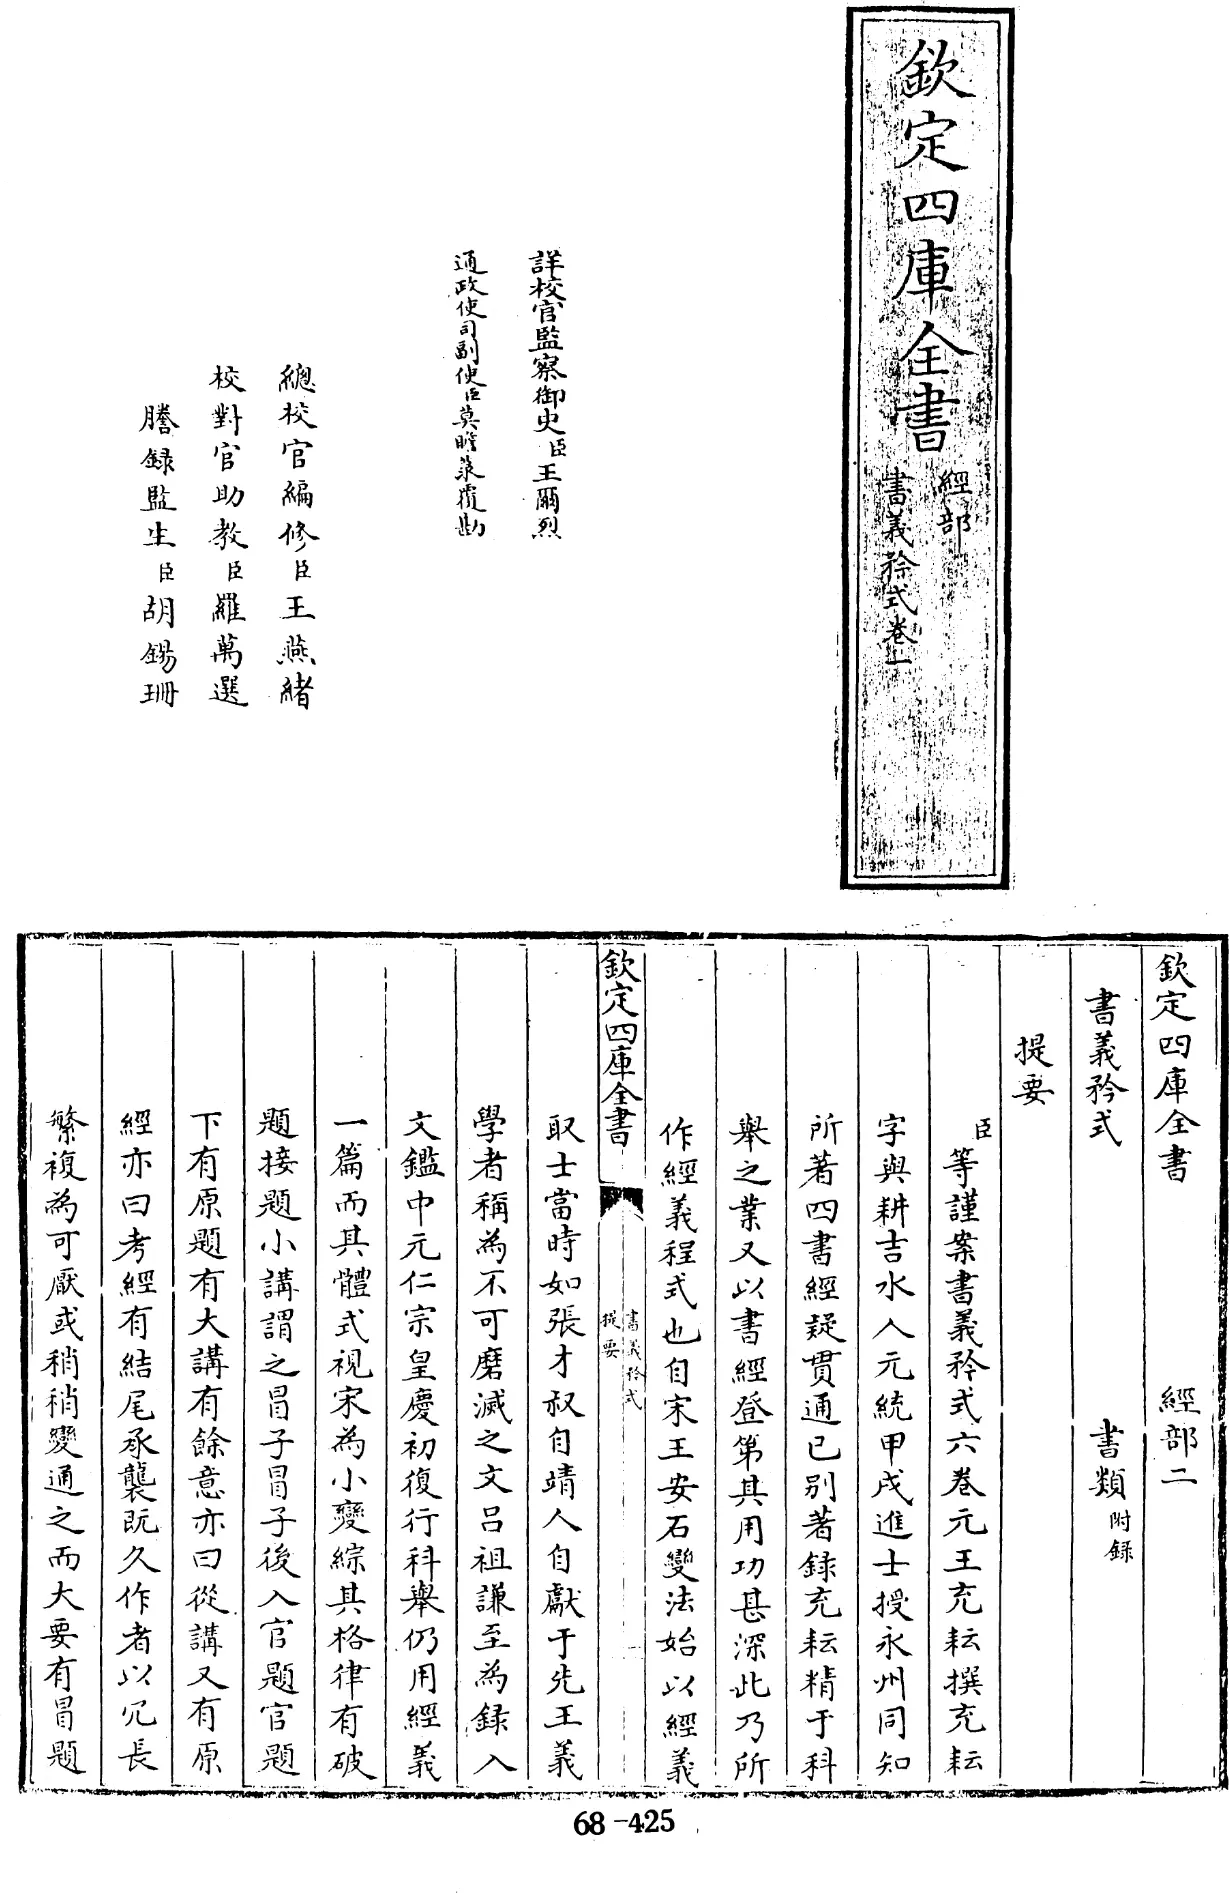 欽定四庫全書
經部
書義矜式卷一
詳校官監察御史臣王爾烈
通政使司副使臣莫瞻菉覆勘
總校官編修臣王燕緒
校對官助教臣羅萬選
謄録監生臣胡錫珊
欽定四庫全書 經部二
書義矜式 書類附録
提要
臣等謹案書義矜式六卷元王充耘撰充耘
字與耕吉水人元統甲戌進士授永州同知
所著四書經疑貫通已别著録充耘精于科
舉之業又以書經登第其用功甚深此乃所
作經義程式也自宋王安石變法始以經義
欽定四庫全書
書義矜式
提要
取士當時如張才叔自靖人自獻于先王義
學者稱為不可磨滅之文吕祖謙至為録入
文鑑中元仁宗皇慶初復行科舉仍用經義
一篇而其體式視宋為小變綜其格律有破
題接題小講謂之冒子冒子後入官題官題
下有原題有大講有餘意亦曰從講又有原
經亦曰考經有結尾承襲既久作者以冗長
繁複為可厭或稍稍變通之而大要有冒題
68-425